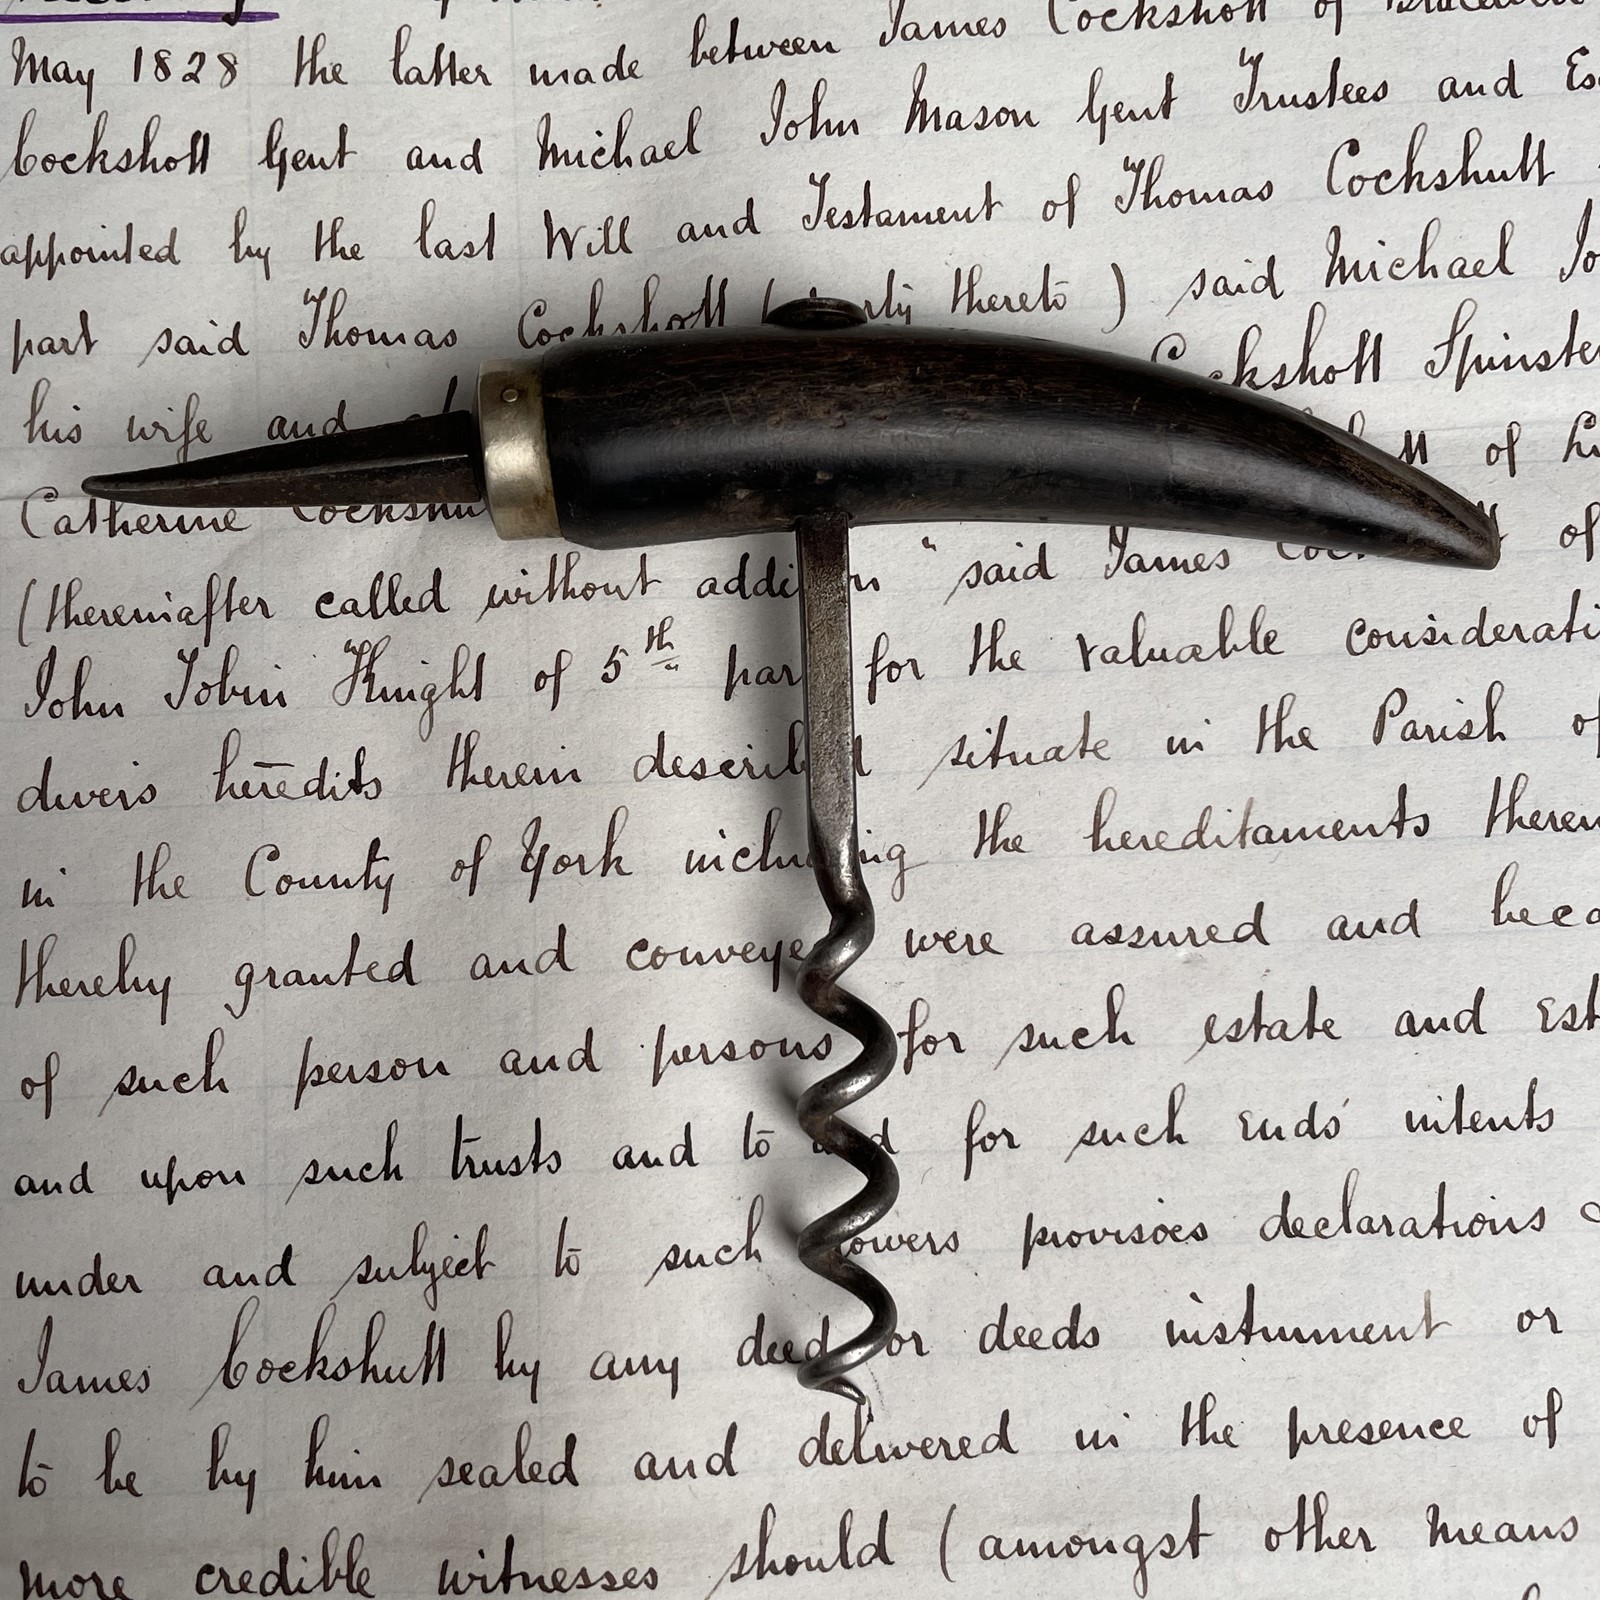 May 1828 the latter made between James Cockshott of
Cockshott Gent and Michael John Mason Gent Trustees and
appointed by the last Will and Testament of Thomas Cockshutt
part said Thomas Cockshott ( party thereto ) said Michael
his wife and Cockshott Spinster
Catherine Cockshutt of
(thereinafter called without addition " said James of
John Tobin Knight of 5th part for the valuable
divers heredits therein described situate in the Parish of
in the County of York including the hereditaments
thereby granted and conveyed were assured and
of such person and persons for such estate and
and upon such trusts and to and for such ends intents
under and subject to such powers provisoes declarations
James Cockshutt by any deed or deeds instrument or
to be by him sealed and delivered in the presence of
more credible witnesses should ( amongst other means